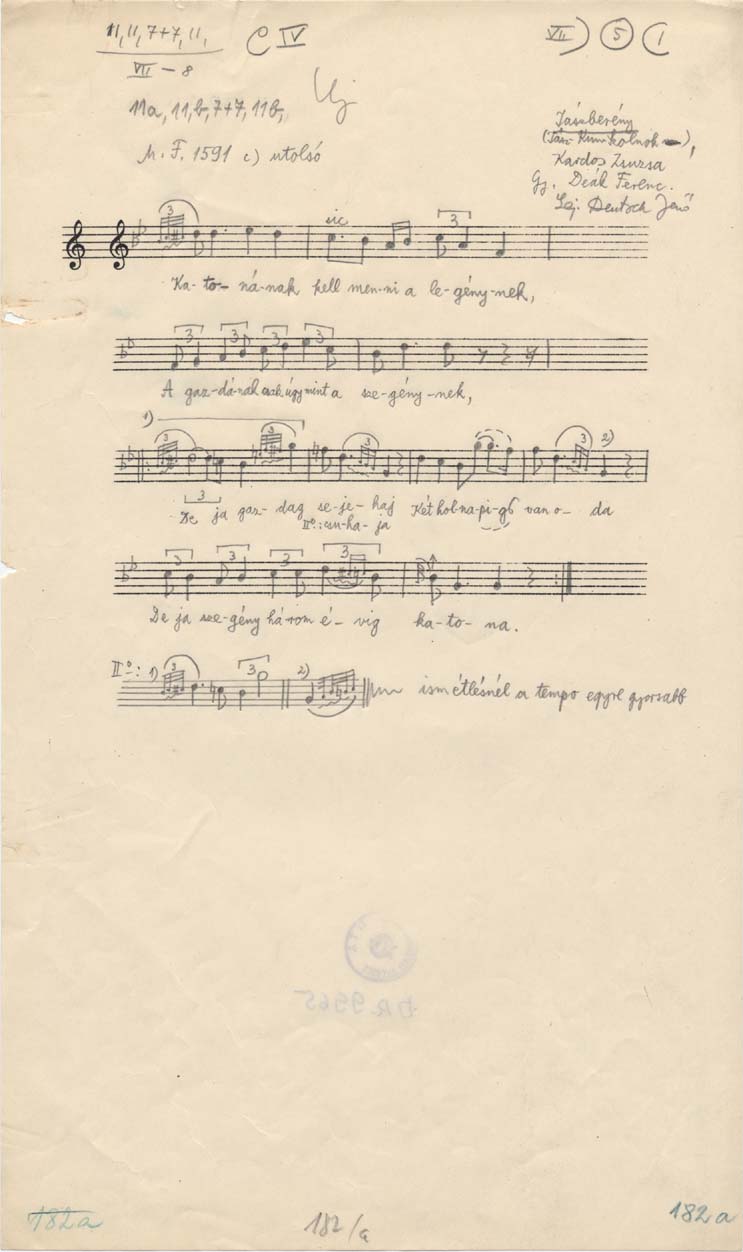 11, 11, 7+7, 11,
VII - 8
C IV
VII) 5 (1
11a, 11, b, 7+7, 11b,
Uj
M. F. 1591 c) utolsó
Jászberény
(Jász-Kun-Szolnok),
Kardos Zsuzsa
Gy. Deák Ferenc.
Lej. Deutsch Jenő
3 sic 3
Ka-to- ná-nak kell men-ni a le-gény-nek,
3 3 3 3
A gaz-dá-nak csak úgy mint a sze-gény-nek,
1) 3 3 3 3 2)
3
De ja gaz-dag se-je-haj Két hol-na-pi-g van o- da
IIº: csu-ha-ja
3 3 3 3
De ja sze-gény há-rom é- vig ka-to- na.
IIº: 1) 3 3 2) ismétlésnél a tempo egyre gyorsabb
DR 9965
182a 182/a 182a